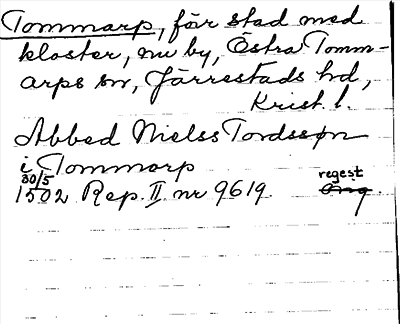 Tommarp, förr stad med
kloster, nu by, Östra Tomm-
arps sn, Järrestads hd,
Krist. l.
Abbed Nielss Tordssøn
i Tommarp
30/5 regest
1502 Rep. II nr 9619 Orig.